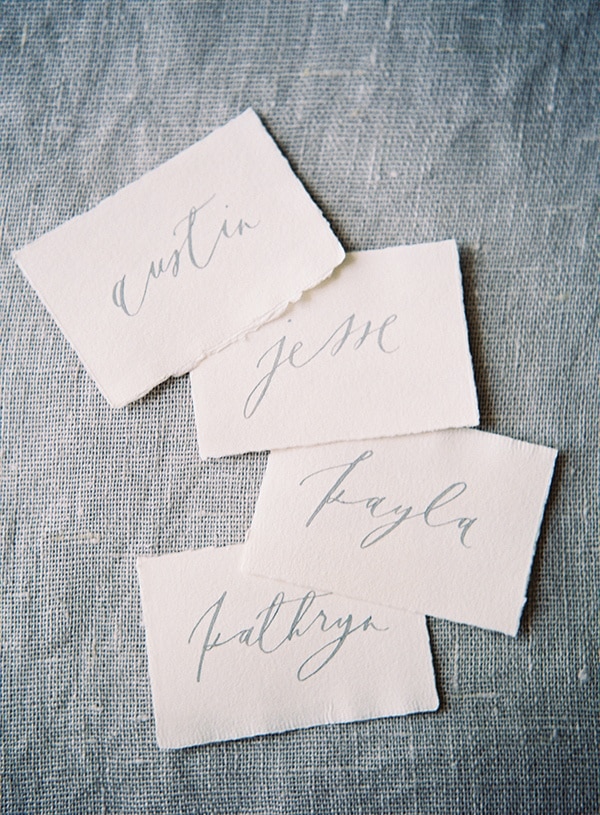 austin
jesse
kayla
kathryn